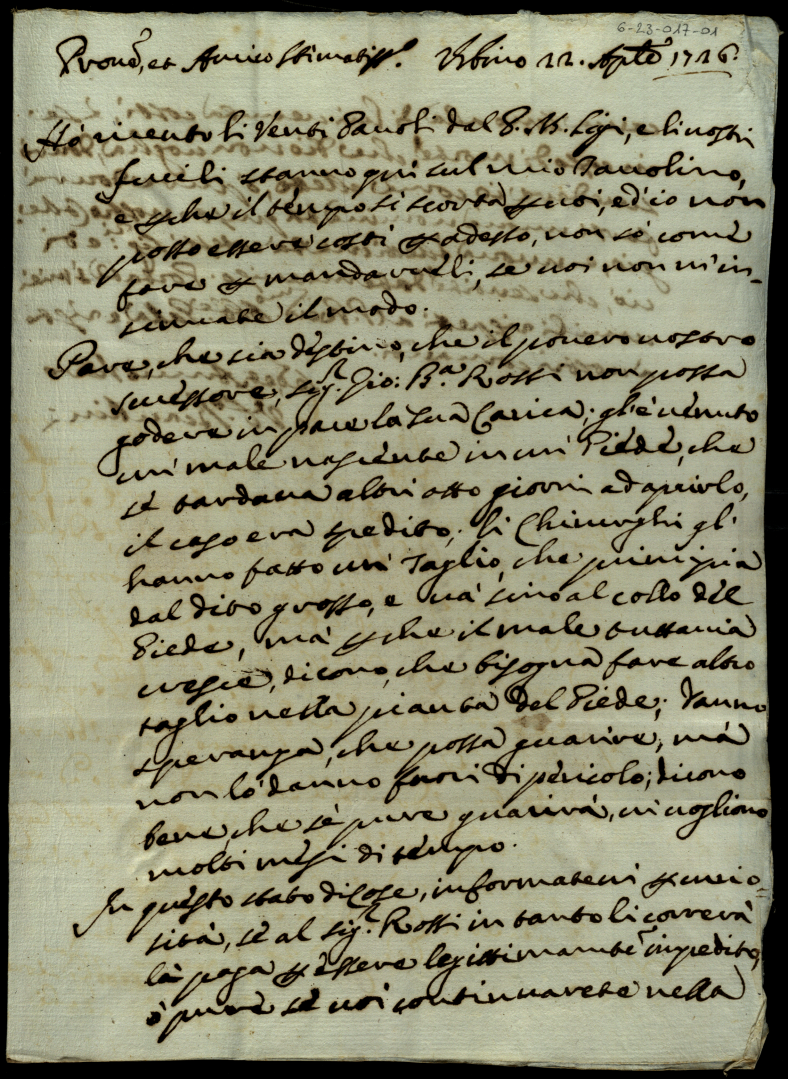 6-23-017-01
Prone, et Amico Stimatiss.º Urbino 22. Aple 1726.
Hò ricevuto li Venti Paoli dal P. M. Ligi, e li vostri
fucili stanno quì sul mio Tavolino,
e pche il tempo si scorta p voi, ed io non
posso essere costì p adesso, non sò come
fare p mandarveli, se voi non m'in-
sinuate il modo.
Pare, che sia destino, che il povero nostro
successore, sigr. Gio: Bª. Rossi non possa
godere in pace la sua Carica; gl'è venuto
un male nascente in un Piede, che
se tardava altri otto giorni ad aprirlo,
il caso era spedito; li Chirurghi gl'
hanno fatto un Taglio, che principia
dal dito grosso, e và sino al collo del
Piede, mà pche il male tuttavia
cresce, dicono, che bisogna fare altro
taglio nella pianta del Piede; danno
speranza, che possa guarire, mà
non lo danno fuori di pericolo; dicono
bene, che se pure guarirà, vi vogliono
molti mesi di tempo.
In questo stato di cose, informatemi p curio=
sità, se al sigr. Rossi in tanto li correrà
la paga p essere legittimamte impedito,
ò pure se voi continuarete nella